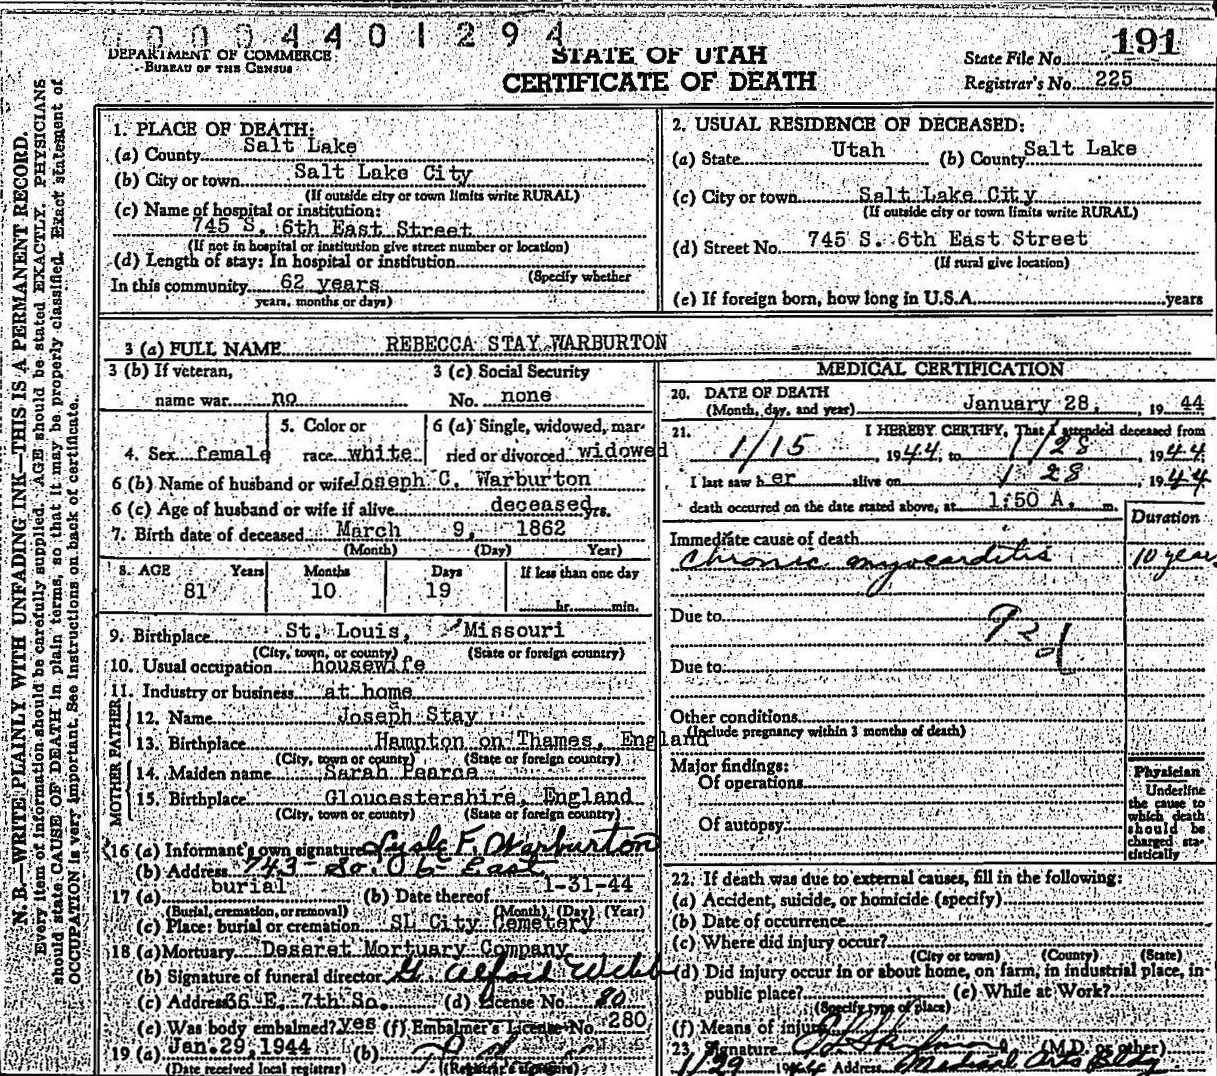 0004401294
DEPARTMENT OF COMMERCE
BUREAU OF THE CENSUS
STATE OF UTAH
CERTIFICATE OF DEATH
State File No. 191
Registrar's No. 225
N. B.—WRITE PLAINLY WITH UNFADING INK—THIS IS A PERMANENT RECORD.
Every item of information should be carefully supplied. AGE should be stated EXACTLY. PHYSICIANS
should state CAUSE OF DEATH in plain terms, so that it may be properly classified. Exact statement of
OCCUPATION is very important. See instructions on back of certificate.
1. PLACE OF DEATH:
(a) County Salt Lake
(b) City or town Salt Lake City
(If outside city or town limits write RURAL)
(c) Name of hospital or institution:
745 S. 6th East Street
(If not in hospital or institution give street number or location)
(d) Length of stay: In hospital or institution
(Specify whether
In this community 62 years
years, months or days)
2. USUAL RESIDENCE OF DECEASED:
(a) State Utah (b) County Salt Lake
(c) City or town Salt Lake City
(If outside city or town limits write RURAL)
(d) Street No. 745 S. 6th East Street
(If rural give location)
(e) If foreign born, how long in U.S.A. years
3 (a) FULL NAME REBECCA STAY WARBURTON
3 (b) If veteran,
name war no
3 (c) Social Security
No. none
4. Sex female
5. Color or
race white
6 (a) Single, widowed, mar-
ried or divorced widowed
6 (b) Name of husband or wife Joseph C. Warburton
6 (c) Age of husband or wife if alive deceased yrs.
7. Birth date of deceased March 9, 1862
(Month) (Day) Year)
8. AGE Years Months Days If less than one day
81 10 19 hr. min.
9. Birthplace St. Louis, Missouri
(City, town, or county) (State or foreign country)
10. Usual occupation housewife
11. Industry or business at home
FATHER
12. Name Joseph Stay
13. Birthplace Hampton on Thames, England
(City, town or county) (State or foreign country)
MOTHER
14. Maiden name Sarah Pearce
15. Birthplace Gloucestershire, England
(City, town or county) (State or foreign country)
16 (a) Informant's own signature Lysle F. Warburton
(b) Address 743 So. 6 East
17 (a) burial (b) Date thereof 1-31-44
(Burial, cremation, or removal) (Month) (Day) (Year)
(c) Place: burial or cremation SL City Cemetery
18 (a) Mortuary Deseret Mortuary Company
(b) Signature of funeral director G. Alford Webb
(c) Address 36 E. 7th So. (d) License No. 80
(e) Was body embalmed? yes (f) Embalmer's License No. 280
19 (a) Jan. 29, 1944 (b)
(Date received local registrar) (Registrar's signature)
MEDICAL CERTIFICATION
20. DATE OF DEATH
(Month, day, and year) January 28, , 19 44
21. I HEREBY CERTIFY, That I attended deceased from
1/15, 1944, to 1/28, 1944.
I last saw her alive on 1 28, 1944
death occurred on the date stated above, at 1:50 A. m.
Duration
Immediate cause of death
Chronic myocarditis 10 years
Due to
Due to
Other conditions
(Include pregnancy within 3 months of death)
Major findings:
Of operations
Of autopsy
Physician
Underline
the cause to
which death
should be
charged sta-
tistically
22. If death was due to external causes, fill in the following:
(a) Accident, suicide, or homicide (specify)
(b) Date of occurrence
(c) Where did injury occur?
(City or town) (County) (State)
(d) Did injury occur in or about home, on farm, in industrial place, in
public place? (e) While at Work?
(Specify type of place)
(f) Means of injury
23. Signature (M.D. or other)
1/29 1944 Address Medical Arts Bldg